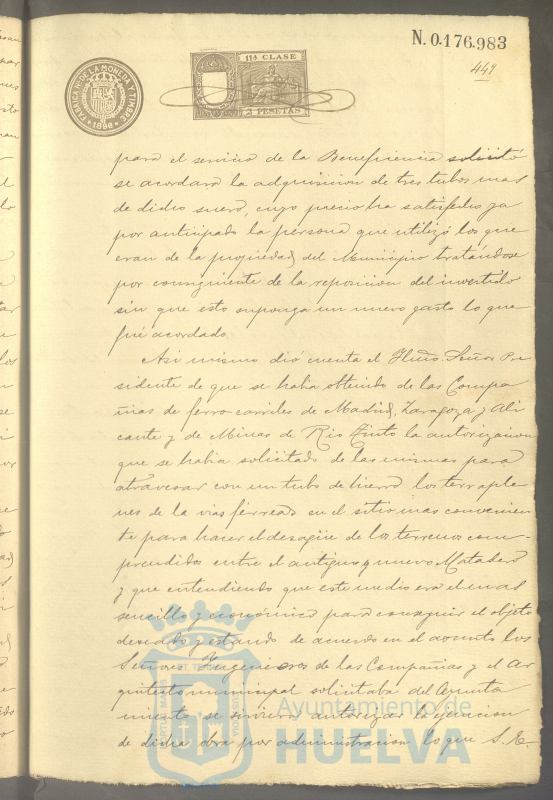 N. 0.176.983
449
FABRICA NAL. DE LA MONEDA Y TIMBRE
1898
11ª CLASE
2 PESETAS
para el servicio de la Beneficencia solicitó
se acordara la adquisicion de tres tubos mas
de dicho suero, cuyo precio ha satisfecho ya
por anticipado la persona que utilizó los que
eran de la propiedad del Municipio tratándose
por consiguiente de la reposicion del invertido
sin que esto suponga un nuevo gasto lo que
fué acordado.
Asi mismo dió cuenta el Iltmo. Señor Pre-
sidente de que se habia obtenido de las Compa
ñias de ferro-carriles de Madrid, Zaragoza y Ali
cante y de Minas de Rio Tinto la autorizacion
que se habia solicitado de las mismas para
atravesar con un tubo de hierro los terraple
nes de la vias férreas en el sitio mas convenien
te para hacer el desagüe de los terrenos com-
prendidos entre el antiguo y nuevo Matadero
y que entendiendo que este medio era el mas
sencillo y económico para conseguir el objeto
deseado y estando de acuerdo en el asunto los
Señores Ingenieros de las Compañias y el ar
quitecto municipal solicitaba del Ayunta
miento se sirviera autorizar la ejecucion
de dicha obra por administracion lo que S. E.
Ayuntamiento de
HUELVA